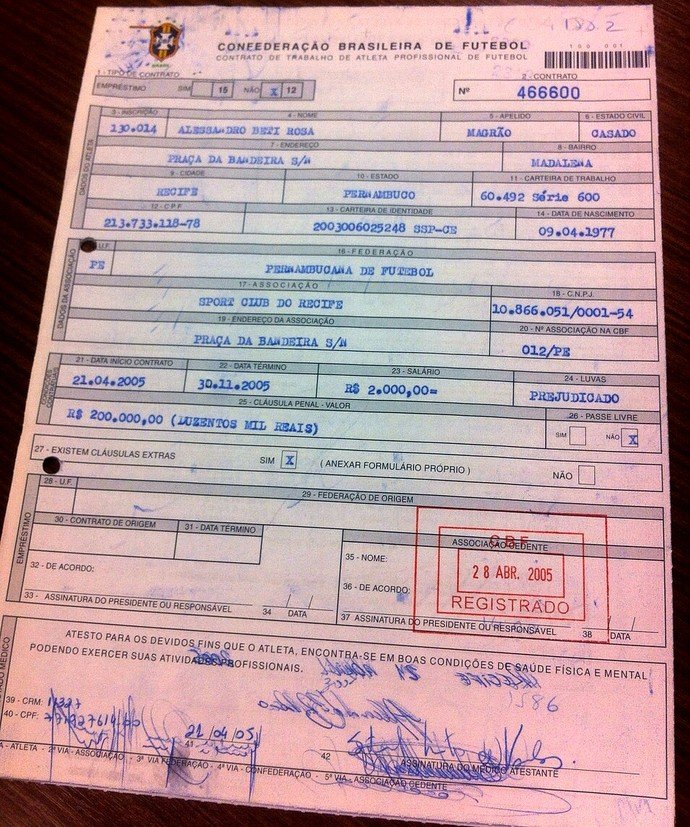 CONFEDERAÇÃO BRASILEIRA DE FUTEBOL
CONTRATO DE TRABALHO DE ATLETA PROFISSIONAL DE FUTEBOL
1 - TIPO DE CONTRATO
EMPRÉSTIMO SIM 15 NÃO X 12
2 - CONTRATO
Nº 466600
3 - INSCRIÇÃO 4 - NOME 5 - APELIDO 6 - ESTADO CIVIL
130.014 ALESSANDRO BETI ROSA MAGRÃO CASADO
7 - ENDEREÇO 8 - BAIRRO
PRAÇA DA BANDEIRA S/N MADALENA
9 - CIDADE 10 - ESTADO 11 - CARTEIRA DE TRABALHO
RECIFE PERNAMBUCO 60.492 Série 600
12 - C.P.F. 13 - CARTEIRA DE IDENTIDADE 14 - DATA DE NASCIMENTO
213.733.118-78 2003006025248 SSP-CE 09.04.1977
DADOS DO ATLETA
U.F. 16 - FEDERAÇÃO
PE PERNAMBUCANA DE FUTEBOL
17 - ASSOCIAÇÃO 18 - C.N.P.J.
SPORT CLUB DO RECIFE 10.866.051/0001-54
19 - ENDEREÇO DA ASSOCIAÇÃO 20 - Nº ASSOCIAÇÃO NA CBF
PRAÇA DA BANDEIRA S/N 012/PE
DADOS DA ASSOCIAÇÃO
21 - DATA INÍCIO CONTRATO 22 - DATA TÉRMINO 23 - SALÁRIO 24 - LUVAS
21.04.2005 30.11.2005 R$ 2.000,00= PREJUDICADO
25 - CLÁUSULA PENAL - VALOR 26 - PASSE LIVRE
R$ 200.000,00 (DUZENTOS MIL REAIS) SIM NÃO X
27 - EXISTEM CLÁUSULAS EXTRAS SIM X ( ANEXAR FORMULÁRIO PRÓPRIO ) NÃO
28 - U.F. 29 - FEDERAÇÃO DE ORIGEM
30 - CONTRATO DE ORIGEM 31 - DATA TÉRMINO
ASSOCIAÇÃO CEDENTE
EMPRÉSTIMO
32 - DE ACORDO:
35 - NOME:
36 - DE ACORDO:
33 - ASSINATURA DO PRESIDENTE OU RESPONSÁVEL 34 DATA
37 ASSINATURA DO PRESIDENTE OU RESPONSÁVEL 38 DATA
C.B.F.
28 ABR. 2005
REGISTRADO
ATESTO PARA OS DEVIDOS FINS QUE O ATLETA, ENCONTRA-SE EM BOAS CONDIÇÕES DE SAÚDE FÍSICA E MENTAL
PODENDO EXERCER SUAS ATIVIDADES PROFISSIONAIS.
39 - CRM:
40 - CPF:
21/04/05
41
42
ASSINATURA DO MÉDICO ATESTANTE
- ATLETA - 2ª VIA - ASSOCIAÇÃO - 3ª VIA FEDERAÇÃO - 4ª VIA - CONFEDERAÇÃO - 5ª VIA - ASSOCIAÇÃO CEDENTE